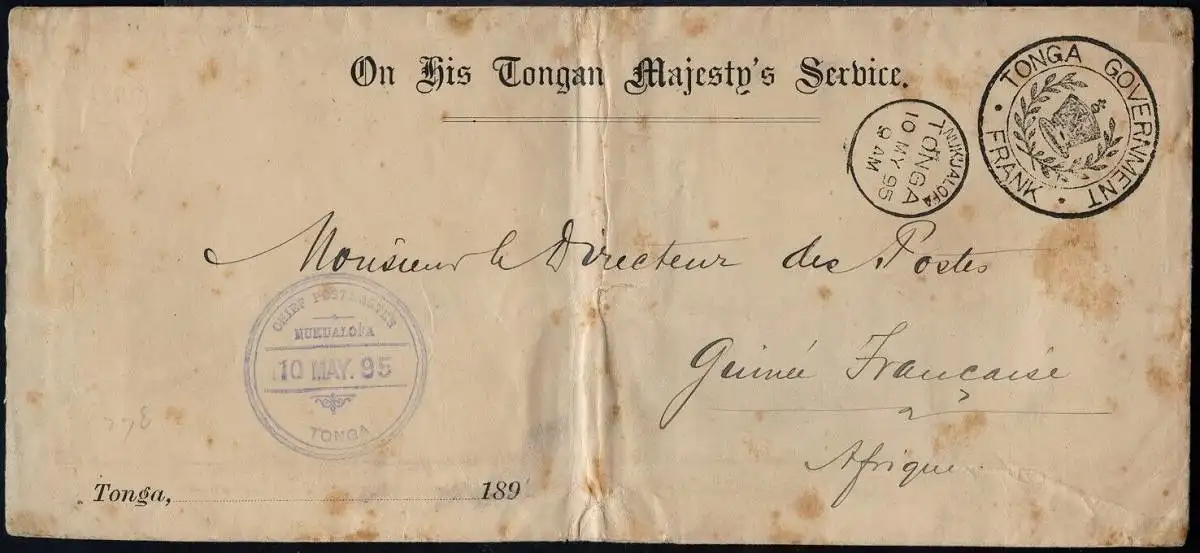 On His Tongan Majesty's Service.
TONGA GOVERNMENT · FRANK ·
NUKUALOFA
TONGA
10 MY 95
9 AM
Monsieur le Directeur des Postes
CHIEF POSTMASTER
NUKUALOFA
10 MAY. 95
TONGA
Guinée Française
Afrique
Tonga, 189